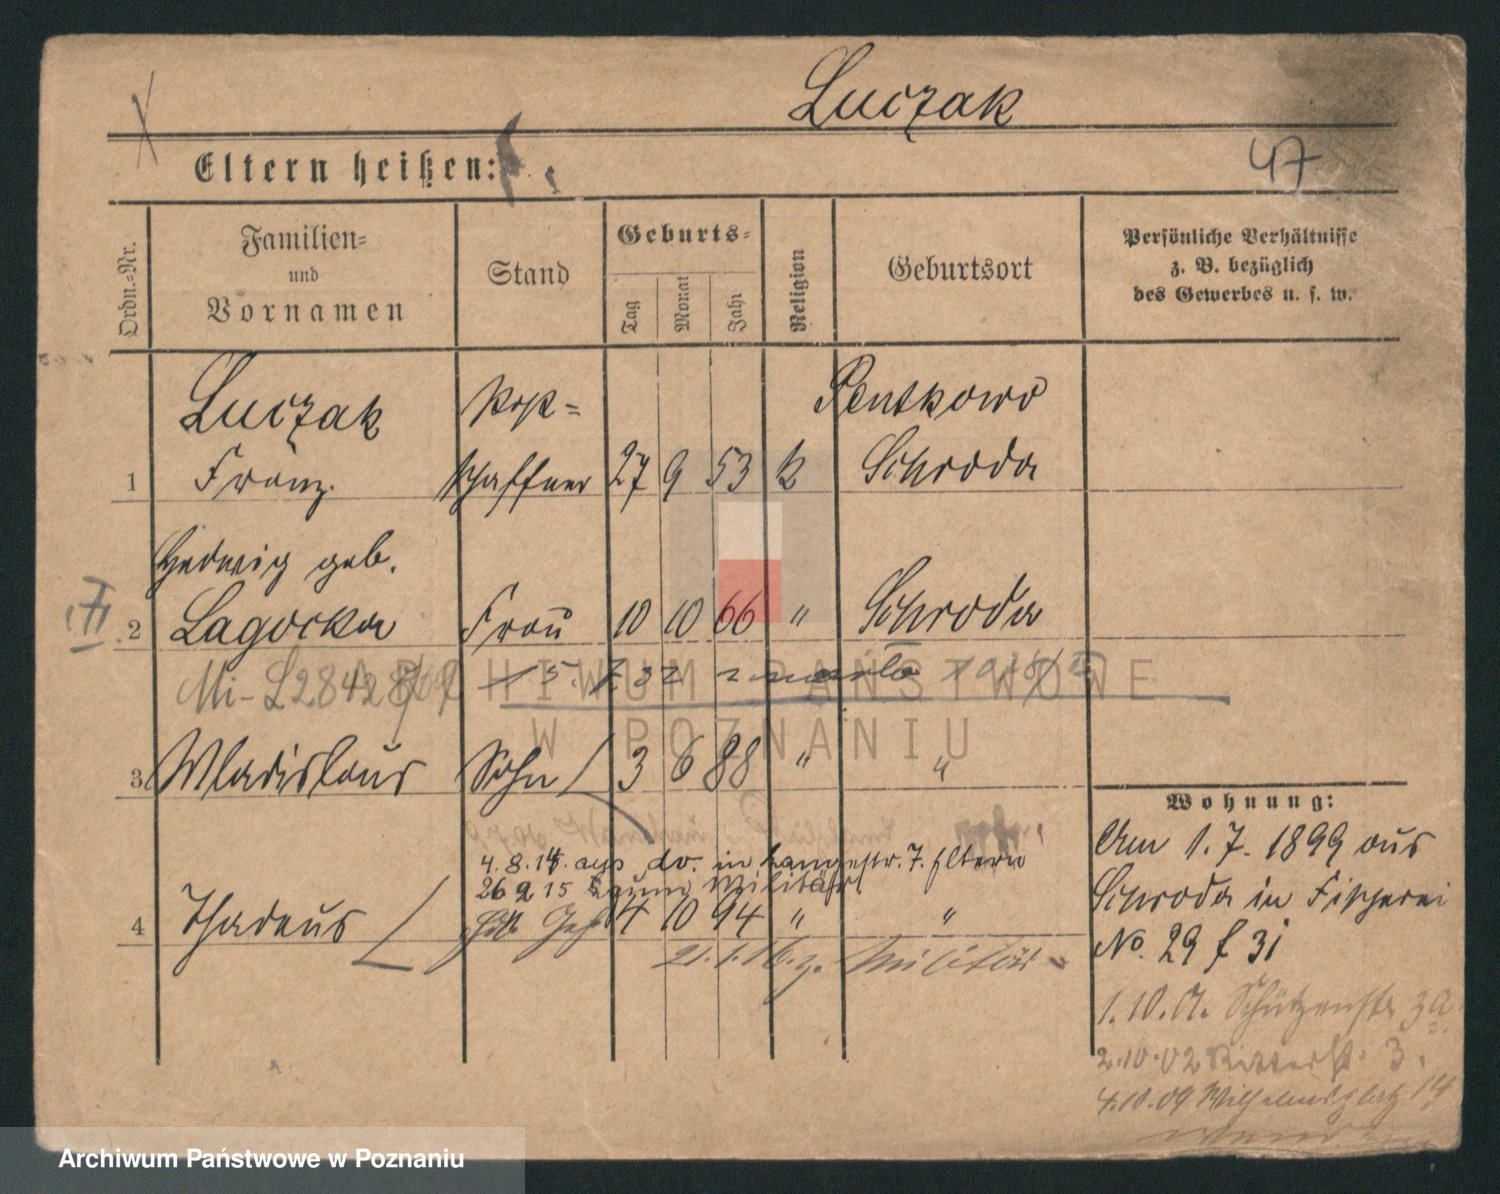 Luczak
47
Eltern heißen:
Ordn.-Nr.
Familien-
und
Vornamen
Stand
Geburts-
Tag
Monat
Jahr
Religion
Geburtsort
Persönliche Verhältnisse
z. B. bezüglich
des Gewerbes u. s. w.
Luczak
Franz.
1
Post-
schaffner
27 9 53 k
Pentkowo
Schroda
Hedwig geb.
2 Lagocka Frau 10 10 66 " Schroda
Mi-L28428/
15. 7. 32 zmarła
3 Wladislaus Sohn 3 6 88 " "
4. 8. 14. do. in Langestr. 7. Eltern
26 2 15 zum Militär
4 Thadeus 4 10 94 " "
21. 1. 16. z. Militär
Wohnung:
Am 1. 7. 1899 aus
Schroda in Fischerei
No. 29 f 31
1. 10. 01. Schützenstr 3a
2. 10. 02 Ritterstr. 3.
4. 10. 09 Wilhelmsplatz 14
ARCHIWUM PAŃSTWOWE
W POZNANIU
Archiwum Państwowe w Poznaniu